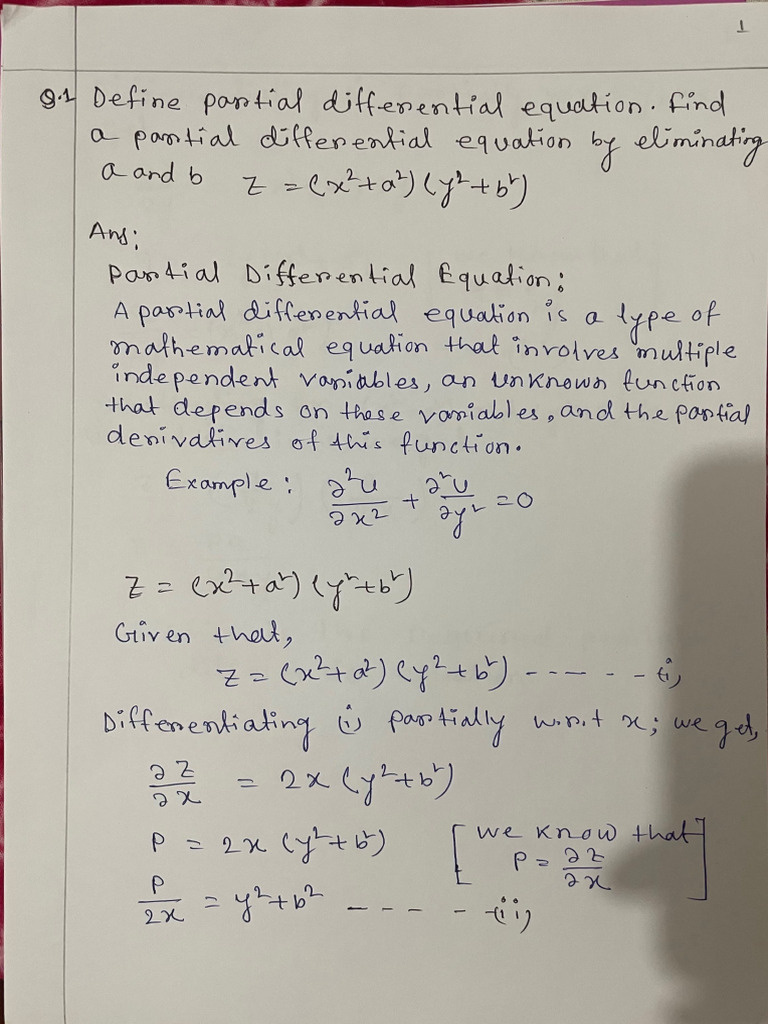 1
Q.1 Define partial differential equation. Find
a partial differential equation by eliminating
a and b z = (x²+a²)(y²+b²)
Ans:
Partial Differential Equation:
A partial differential equation is a type of
mathematical equation that involves multiple
independent variables, an unknown function
that depends on these variables, and the partial
derivatives of this function.
Example: ∂²u/∂x² + ∂²u/∂y² = 0
z = (x²+a²)(y²+b²)
Given that,
z = (x²+a²)(y²+b²) ------(i)
Differentiating (i) partially w.r.t x; we get,
∂z/∂x = 2x(y²+b²)
P = 2x(y²+b²) [we know that
P = ∂z/∂x]
P/2x = y²+b² -----(ii)